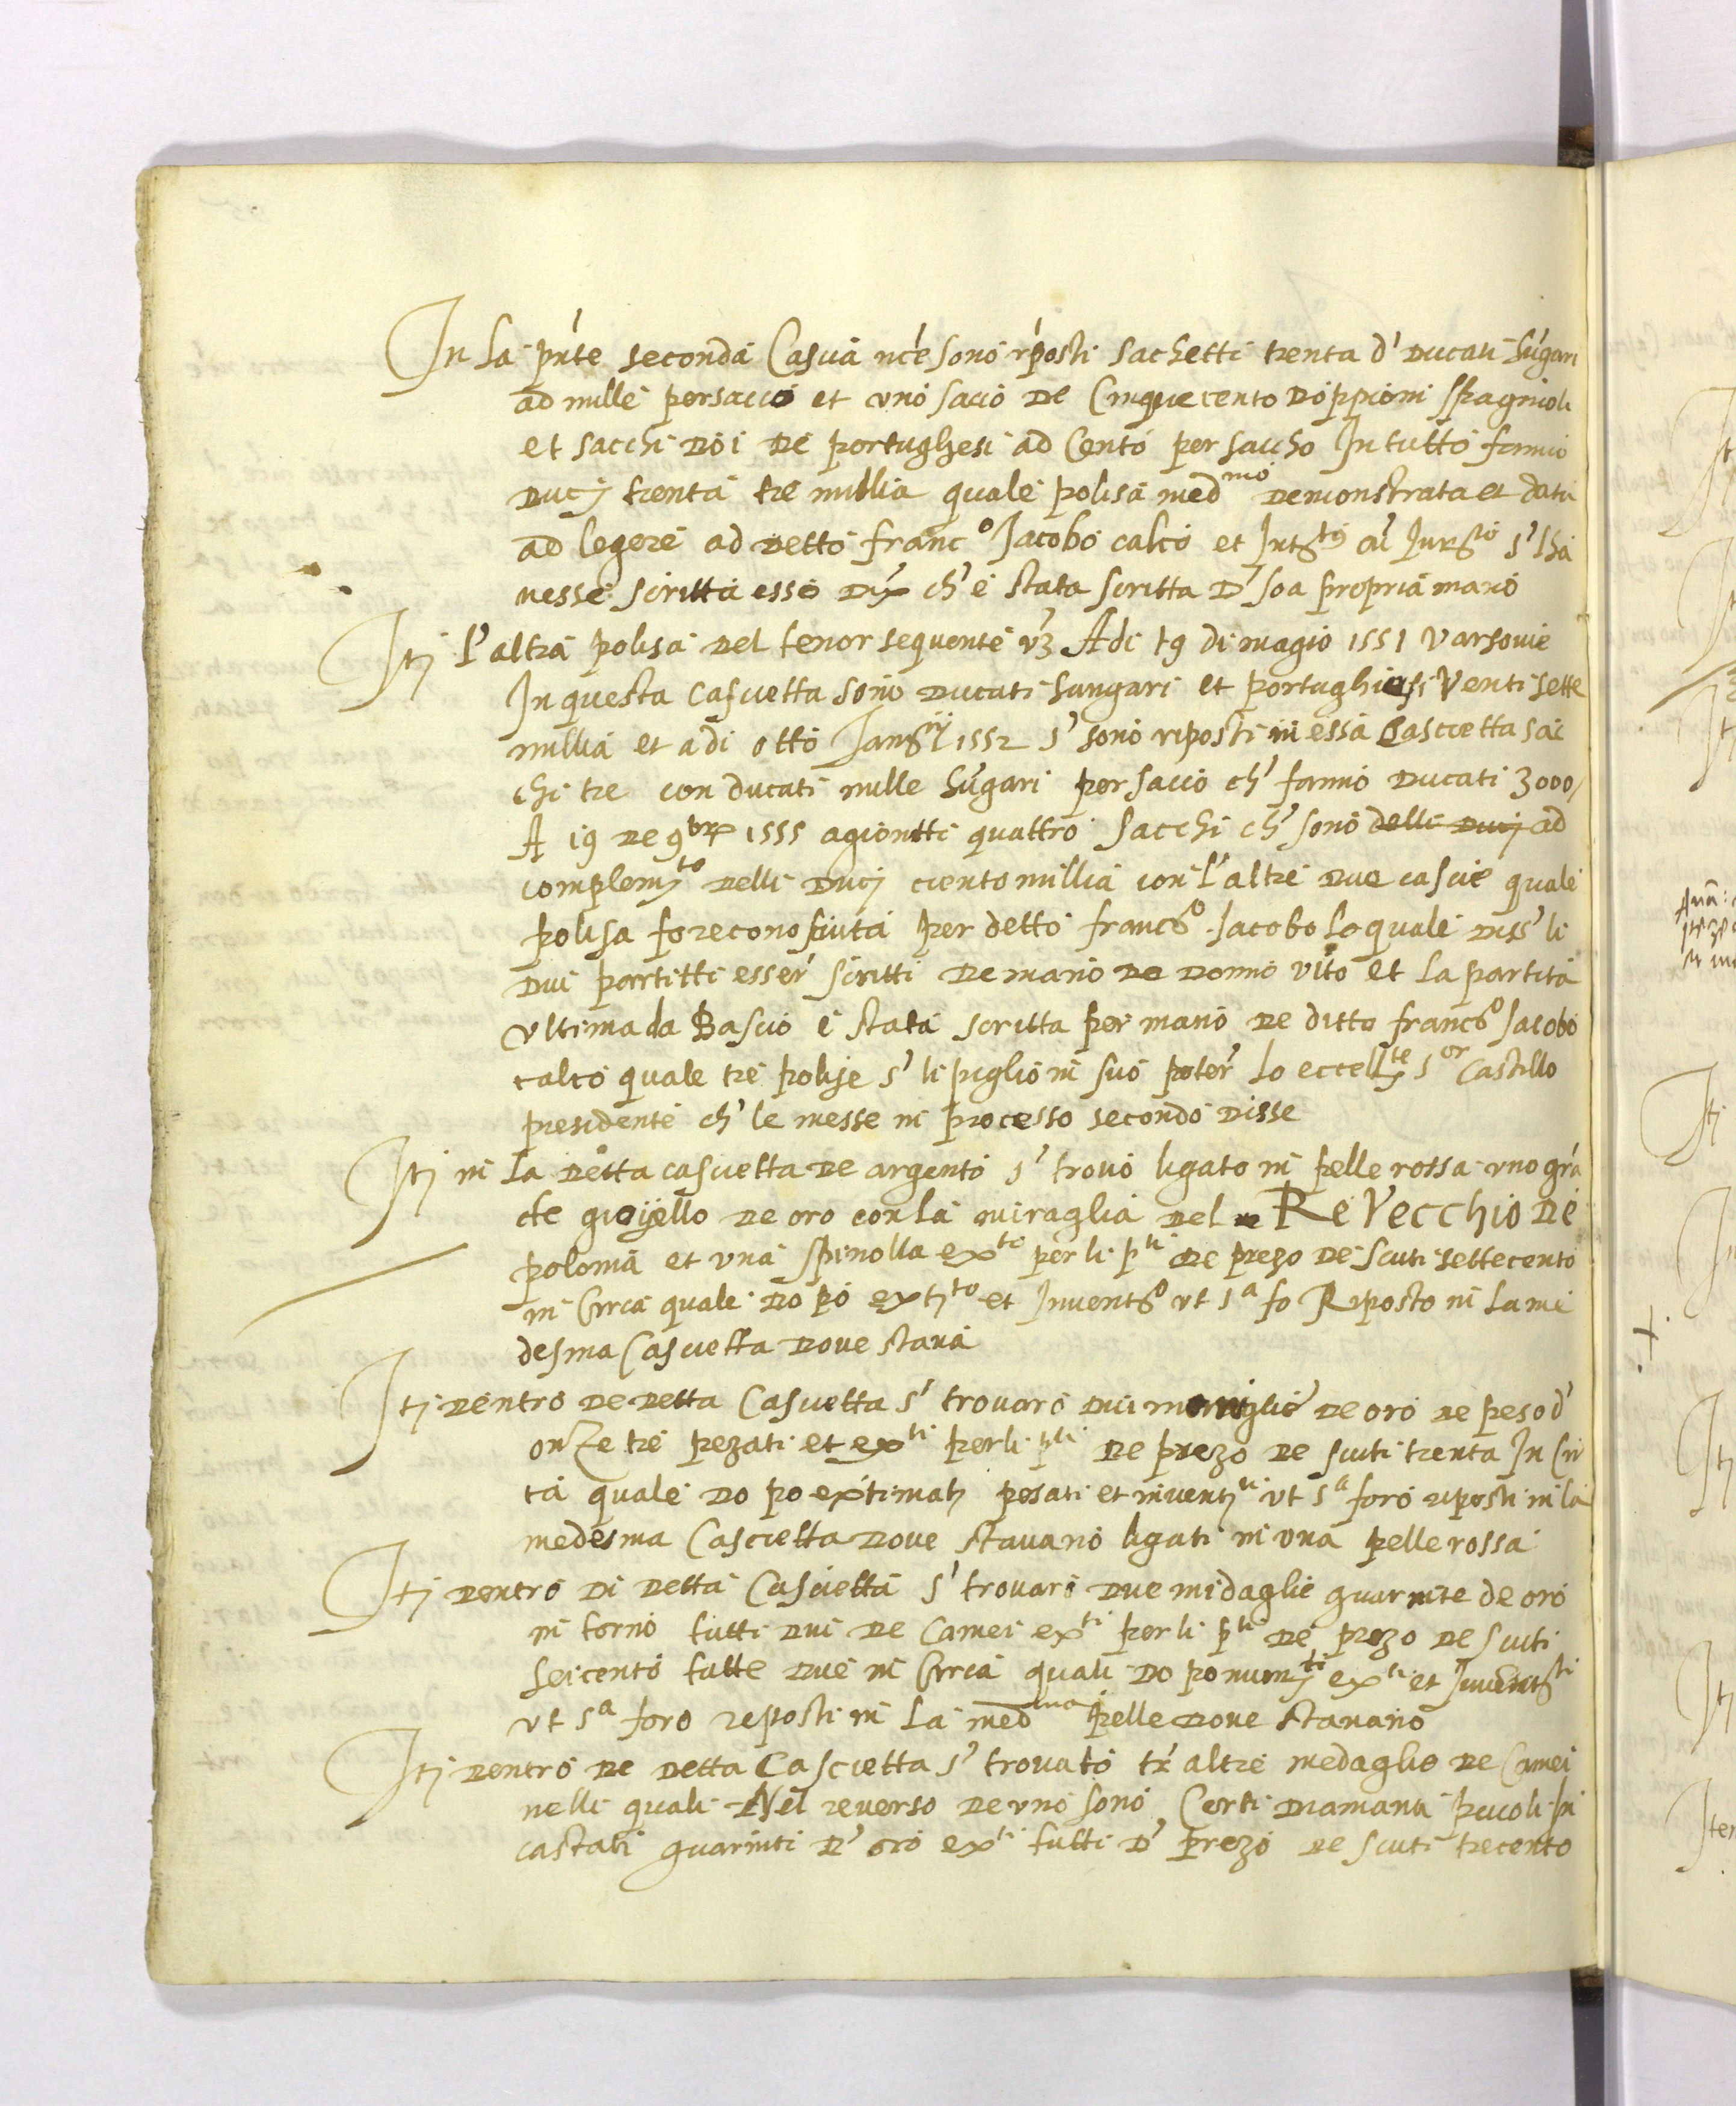 In la pñte seconda Cascia nc'e sono r'posti sachetti trenta d' Ducati hũgari
ad mille per saccό et uno sacco de Cinquecento doppioni spagnioli
et sacchi doi de portughesi ad Cento per saccho In tutto fanno
Ducj trenta tre millia quale polisa medmo demonstrata et data
ad legere ad detto franco Jacobo calco et s' lha
vesse scritta esso ch' e stata scritta d' soa propria mano
Itj l'altra polisa del tenor sequente vz Adi 19 di magio 1551 Varsovie
In questa cascietta sono ducati hungari et portughiesi Venti sette
millia et adi otto 1552 s' sono riposti in essa Cascietta sac
chi tre con ducati mille hũgari per sacco ch' fanno Ducati 3000/
A 19 de 9bre 1555 agiontti quattro sacchi ch' sono delli Ducj ad
complemto delli Ducj cientomillia con l'altre due cascie quale
polisa fo reconosciuta per detto franco Jacobo lo quale diss' li
dui partitti esser' scritti de mano de donno vito et la partita
ultima da Bascio e stata scritta per mano de ditto franco Jacobo
calco quale tre polise s' li piglio in suo poter' lo eccellte sor Castillo
presidente ch' le messe in processo secondo disse
Itj in la detta cascietta de argento s' trovo ligato in pelle rossa uno grã
de gioyello de oro con la miraglia del Re Vecchio de
polonia et una spinolla exto per li pti de prezo de scuti settecento
in Circa quale do po extjto et Invento ut sa fo Riposto in la me
desma Cascietta dove stava
Itj dentro de detta Cascietta s' trovaro dui maniglie de oro de peso d'
onze tre pezati et exti per li pti de prezo de scuti trenta In Cir
ca quale do po extimatj pesati et inventjti ut sa foro riposti in la
medesma Cascietta dove stavano ligati in una pelle rossa
Itj dentro di detta Cascietta s' trovaro due midaglie guarnite de oro
in torno tutti dui de Camei exti per li pti de prezo de scuti
seicento tutte due in Circa quali do po exti et Inventti
ut sa foro reposti in la medma pelle dove stavano
Itj dentro de detta Cascietta s' trovato tr' altre medaglie de Camei
nelli quali Nel reverso de uno sono Certi diamanti piccoli In
castati guarniti d' oro exti tutti d' prezo de scuti trecento